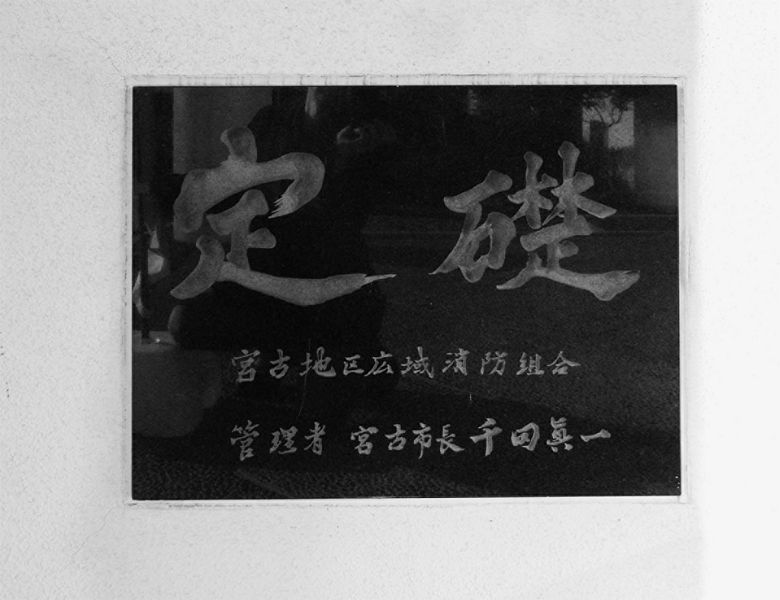 定礎
宮古地区広域消防組合
管理者 宮古市長千田眞一